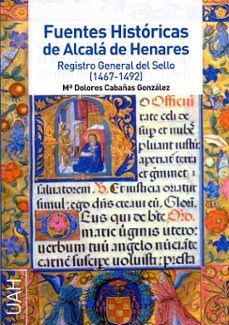 Fuentes Históricas
de Alcalá de Henares
Registro General del Sello
(1467-1492)
Mª Dolores Cabañas González
Officiu
de sup
et nube
pluant
iustum: aperiat
terra et
germinet
saluatorem.
simul: ego dñs creaui eũ. Glori
Deus qui de bte Oro.
marie uginis utero:
verbum tuũ angelo nũciãte
carnẽ suscipe voluisti: presta
UAH